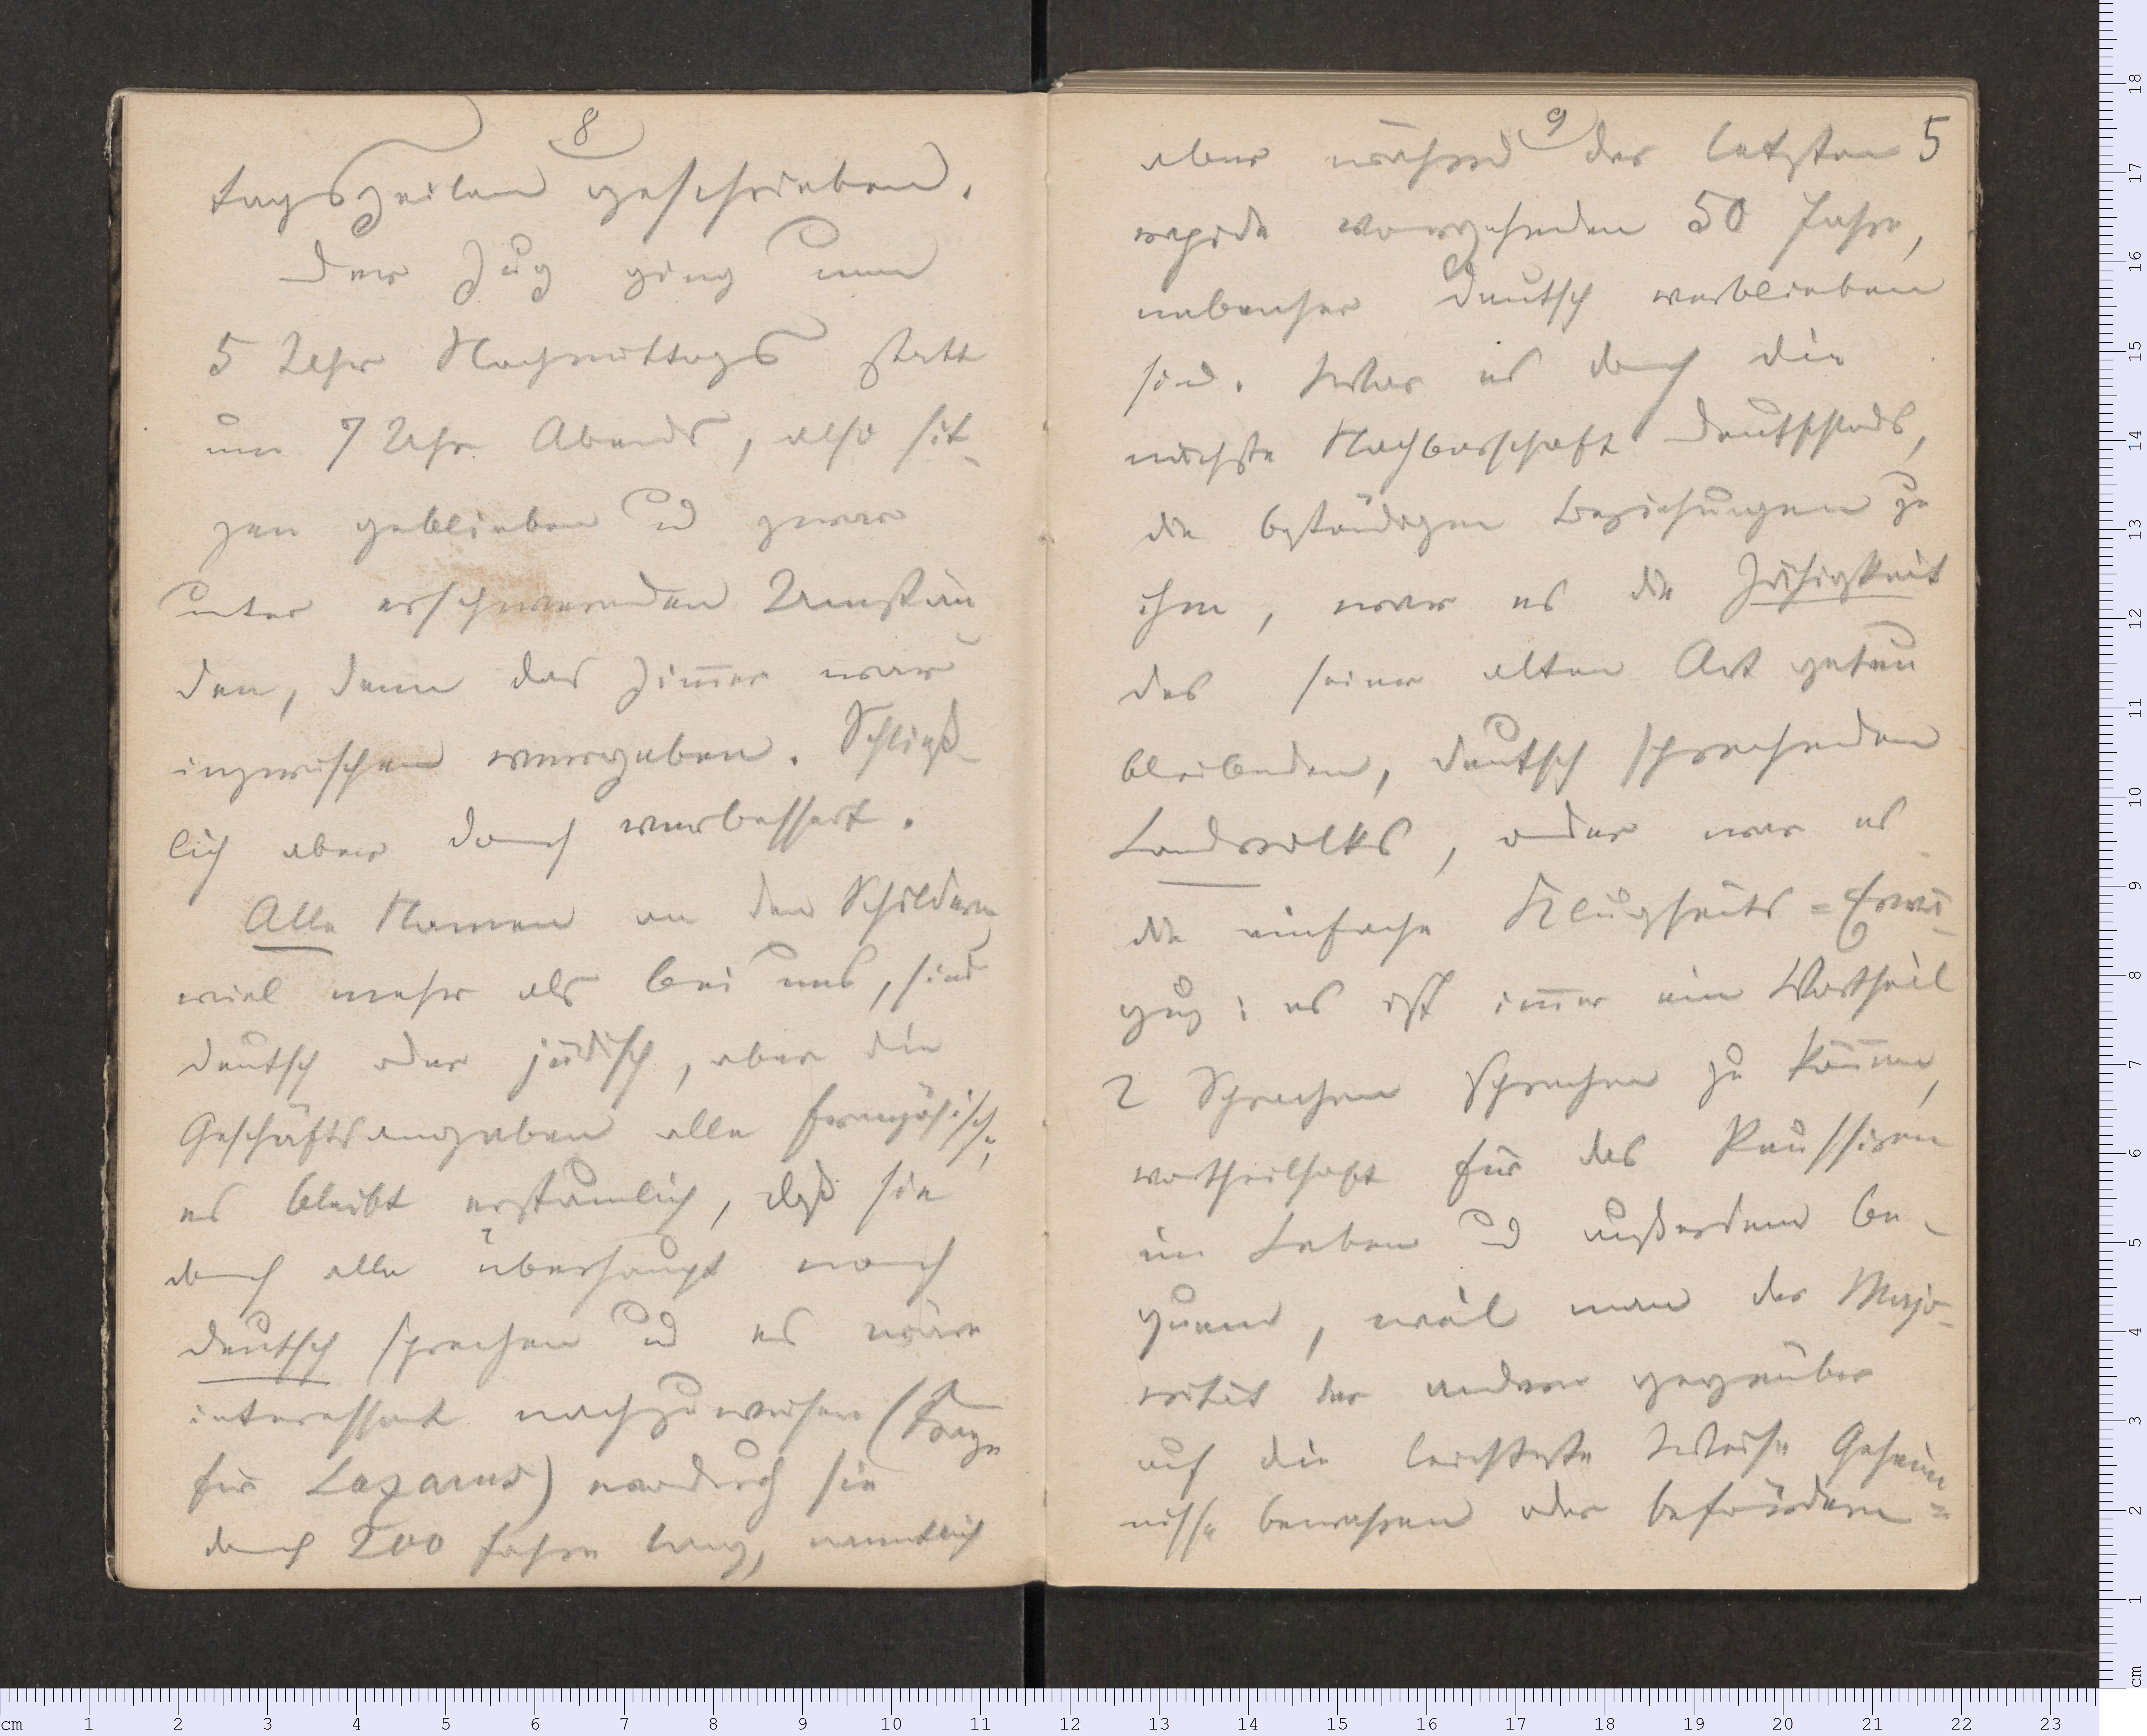 8
tagszeilen geschrieben.
Der Zug ging um
5 Uhr Nachmittags statt
um 7 Uhr Abends, also sit-
zen geblieben und zwar
unter erschwerenden Umstän
den, denn das Zim̄er war
inzwischen vergeben. Schließ-
lich aber doch verbessert.
Alle Namen an den Schildern,
viel mehr als bei uns, sind
deutsch oder jüdisch, aber die
Geschäftsangaben alle französisch;
es bleibt erstaunlich, daß sie
doch alle überhaupt noch
deutsch sprechen und es wäre
interessant nachzuweisen (Frage
für Lazarus) wodurch sie
doch 200 Jahre lang, namentlich
9
5
aber während der letzten
rapide vorgehenden 50 Jahre,
nebenher deutsch verblieben
sind. War es doch die
nächste Nachbarschaft Deutschlands,
die beständigen Beziehungen zu
ihm, war es die Zähigkeit
des seiner alten Art getreu
bleibenden, deutsch sprechenden
Landvolks, oder war es
die einfache Klugheits=Erwä-
gung: es ist im̄er ein Vortheil
2 Sprachen sprechen zu kön̄en,
vortheilhaft für das Reussiren
im Leben und außerdem be-
quem, weil man der Majo-
rität der andern gegenüber
auf die leichteste Weise Geheim
nisse bewahren oder befördern=